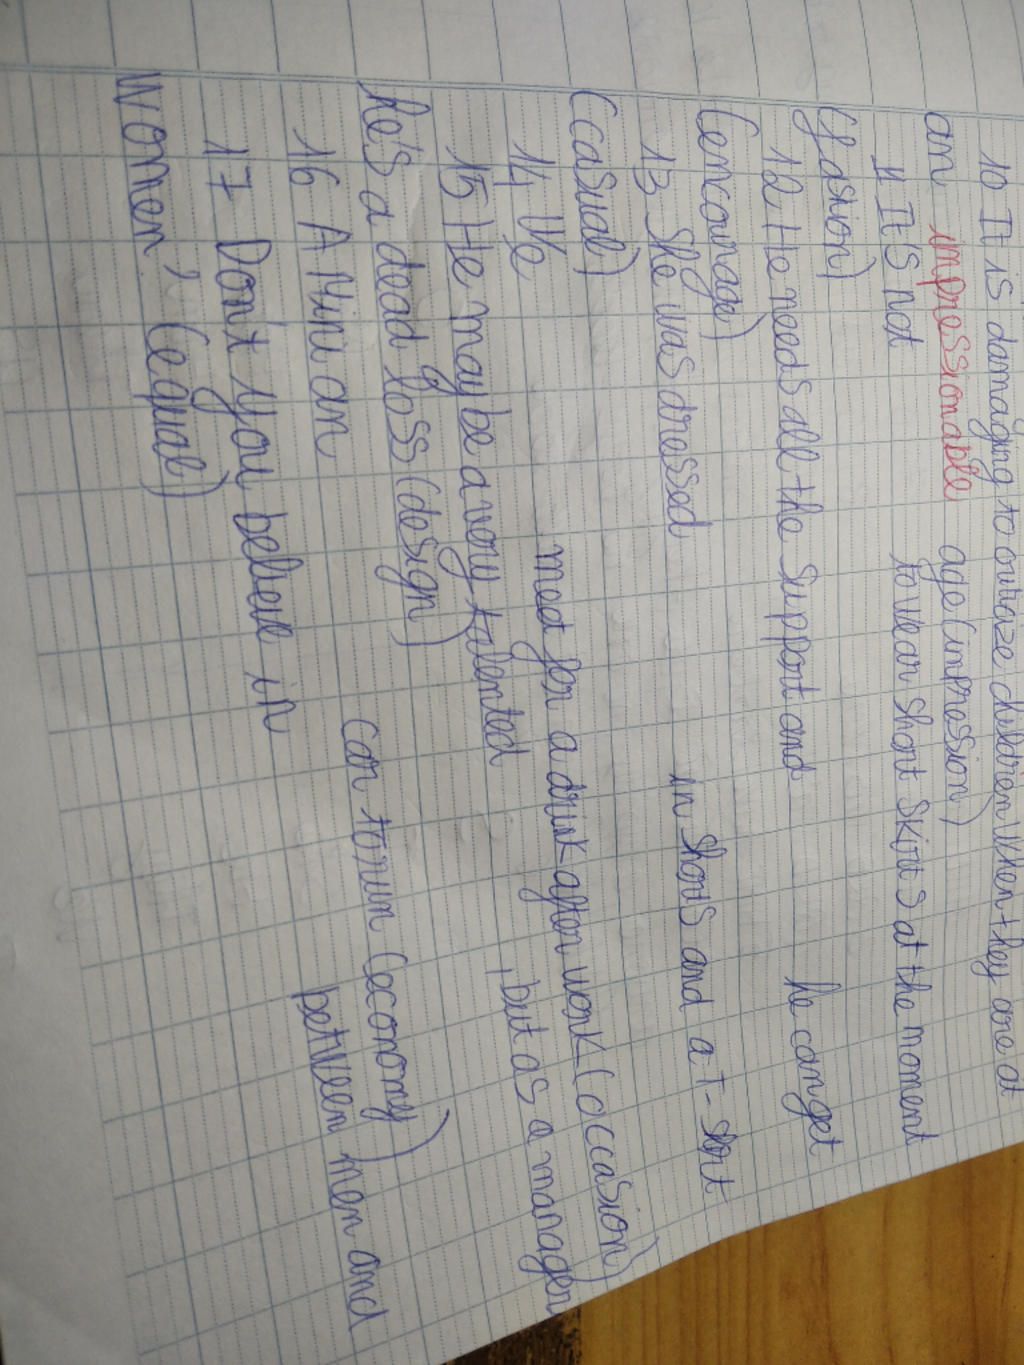 10 It is damaging to outlaize childrien when they are at
an impressionable age (impression)
11 It's Not to wear short skirts at the moment
(fasion)
12 He needs all the support and he can get
(encourage)
13 She was dressed in shorts and a T-shirt
(casual)
14 We meet for a drink after work (occasion)
15 He may be a very talented , but as a manager
he's a dead loss (design)
16 A Mini an car to run (economy)
17 Don't you believe in between men and
women? (equal)